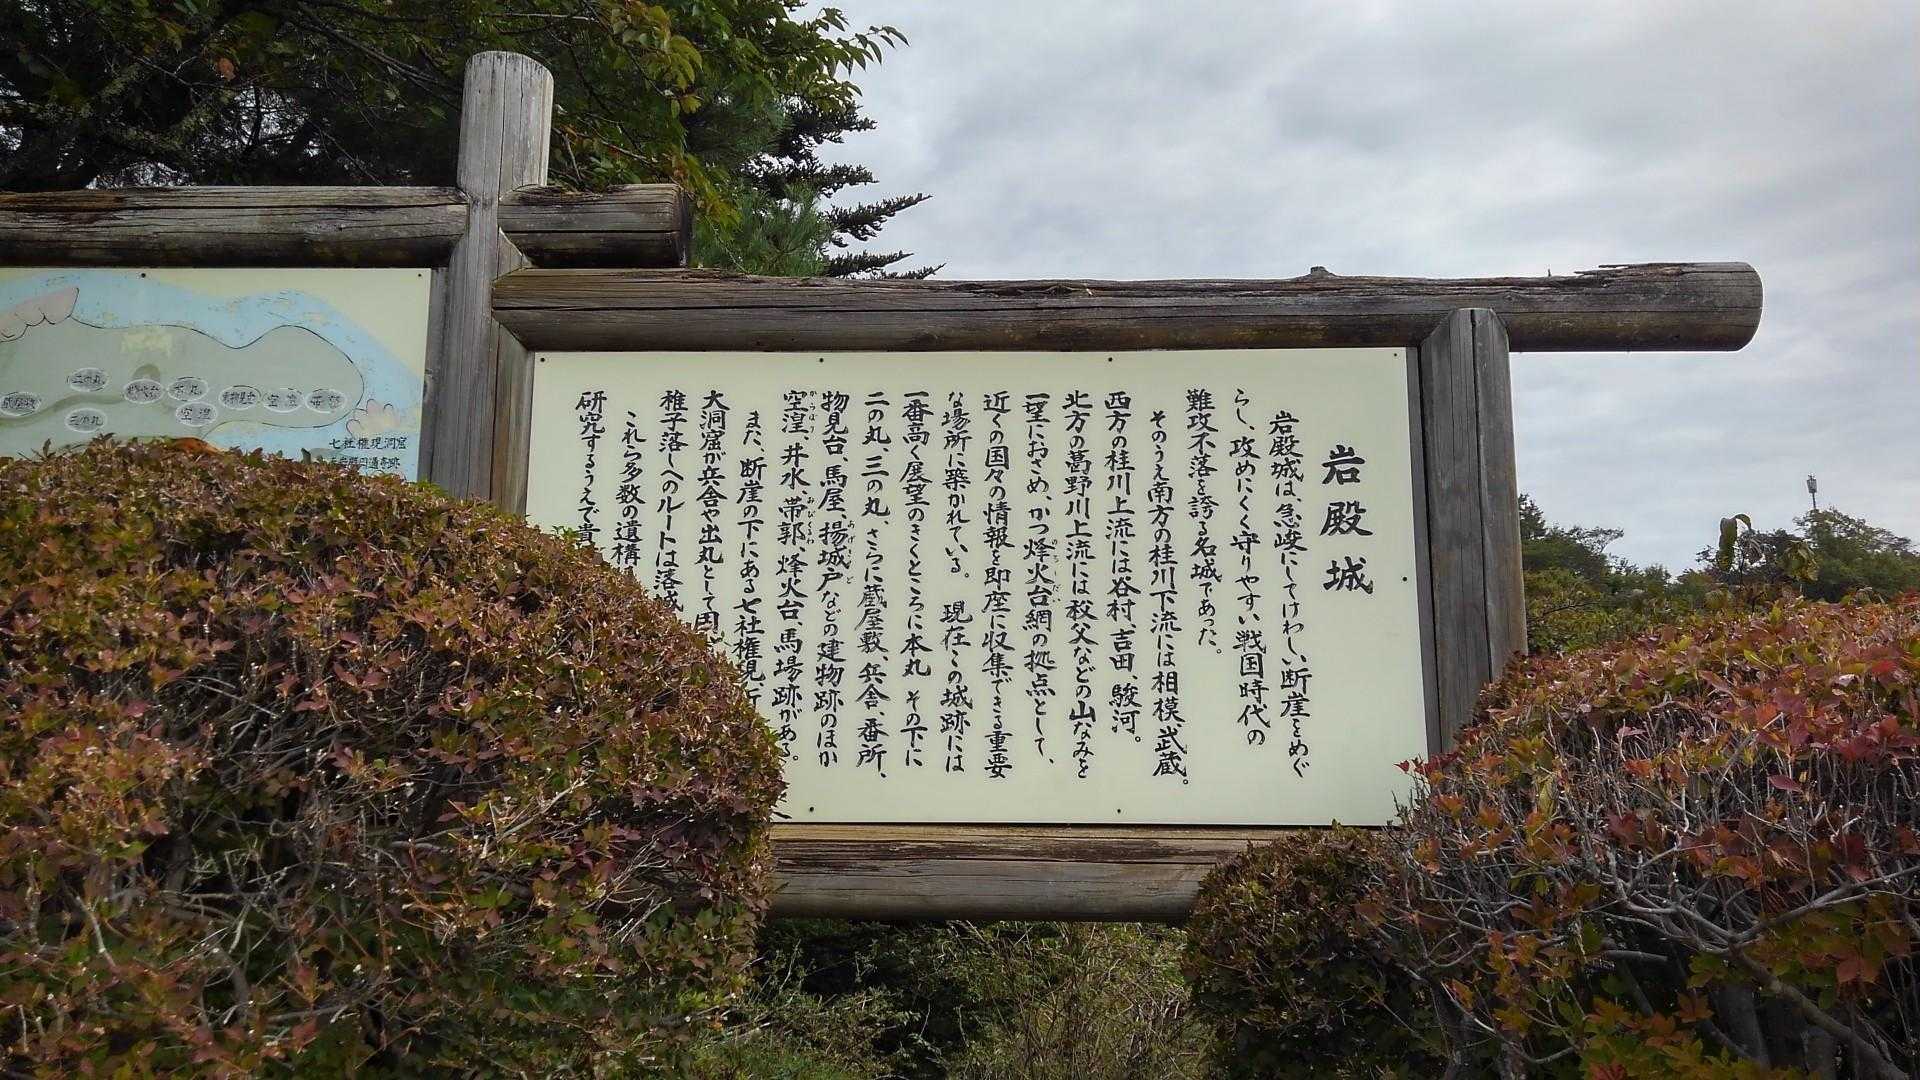 岩殿城
岩殿城は、急峻にしてけわしい断崖をめぐ
らし、攻めにくく守りやすい戦国時代の
難攻不落を誇る名城であった。
そのうえ南方の桂川下流には相模、武蔵。
西方の桂川上流には谷村、吉田、駿河。
北方の葛野川上流には秩父などの山なみを
一望におさめ、かつ烽火台網の拠点として、
近くの国々の情報を即座に収集できる重要
な場所に築かれている。 現在この城跡には
一番高く展望のきくところに本丸 その下に
二の丸、三の丸、さらに蔵屋敷、兵舎、番所、
物見台、馬屋、揚城戸などの建物跡のほか
空湟、井水、帯郭、烽火台、馬場跡がある。
また、断崖の下にある七社権現
大洞窟が兵舎や出丸として
稚子落しへのルートは落城
これら多数の遺構
研究するうえで貴
二の丸
三の丸
本丸
空湟
空湟
帯郭
七社権現洞窟